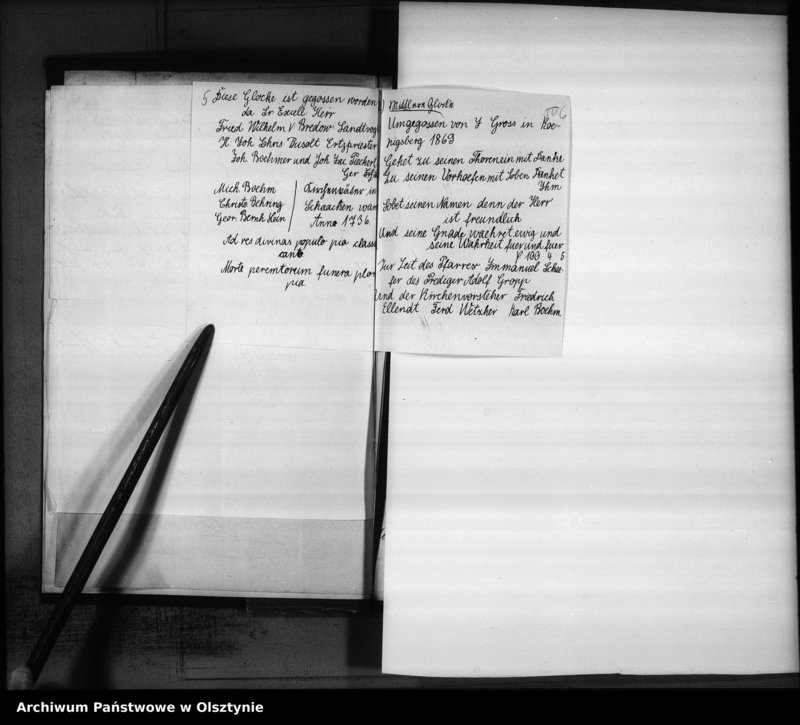 5 Diese Glocke ist gegossen worden
da Sr Excell Herr
Fried Wilhelm V Bredow Landtvogt
H Joh Chris Kusolt Ertzpriester
Joh Boehmer und Joh Jac
Ger
Mich Boehm
Christo Gehring
Geor Bernh Hein
in
Schaacken war
Anno 1736.
Ad res divinas populo pia classi
cano
Morte peremtorum funera plor
pia
106
Mittlere Glocke
Umgegossen von J Gross in Koe-
nigsberg 1869
Gehet zu seinen Thoren ein mit Danke
Zu seinen Vorhoefen mit Loben Danket
Ihm
Lobet seinen Namen denn der Herr
ist freundlich
Und seine Gnade waehret ewig und
seine Wahrheit fuer und fuer
Ψ 100 4 5
Zur Zeit des Pfarrer Immanuel Schae-
fer des Prediger Adolf Gropp
Und der Kirchenvorsteher Friedrich
Ellendt Ferd Karl Boehm
Archiwum Państwowe w Olsztynie